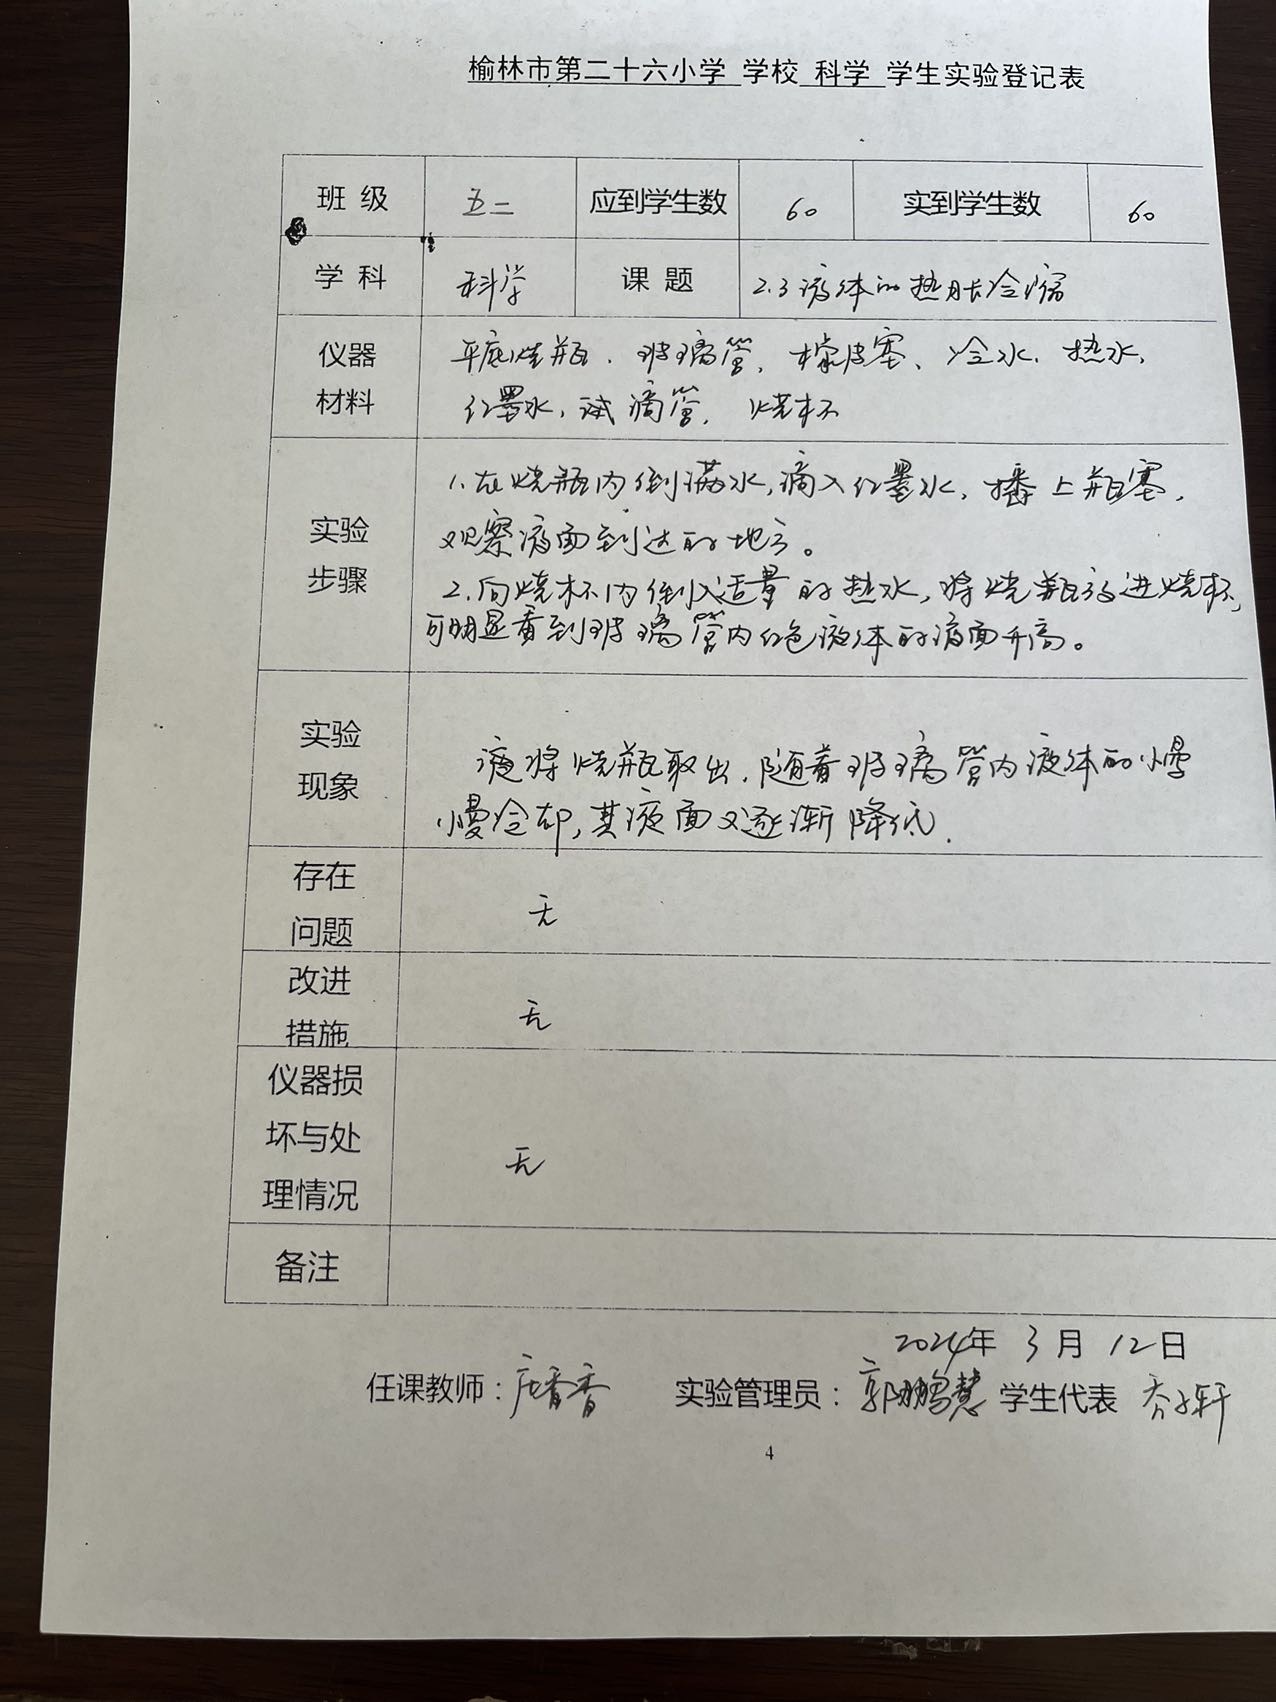 榆林市第二十六小学 学校 科学 学生实验登记表
班 级 五二 应到学生数 60 实到学生数 60
学 科 科学 课 题 2.3液体的热胀冷缩
仪器 平底烧瓶、玻璃管、橡皮塞、冷水、热水、
材料 红墨水、试滴管、烧杯
1.在烧瓶内倒满水,滴入红墨水,插上瓶塞,
实验 观察液面到达的地方。
步骤 2.向烧杯内倒入适量的热水,将烧瓶放进烧杯,
可明显看到玻璃管内红色液体的液面升高。
实验 将烧瓶取出,随着玻璃管内液体的慢
现象 慢冷却,其液面又逐渐降低.
存在
问题 无
改进
措施 无
仪器损
坏与处 无
理情况
备注
2024年 3月 12日
任课教师: 实验管理员:郭鹏慧 学生代表
4